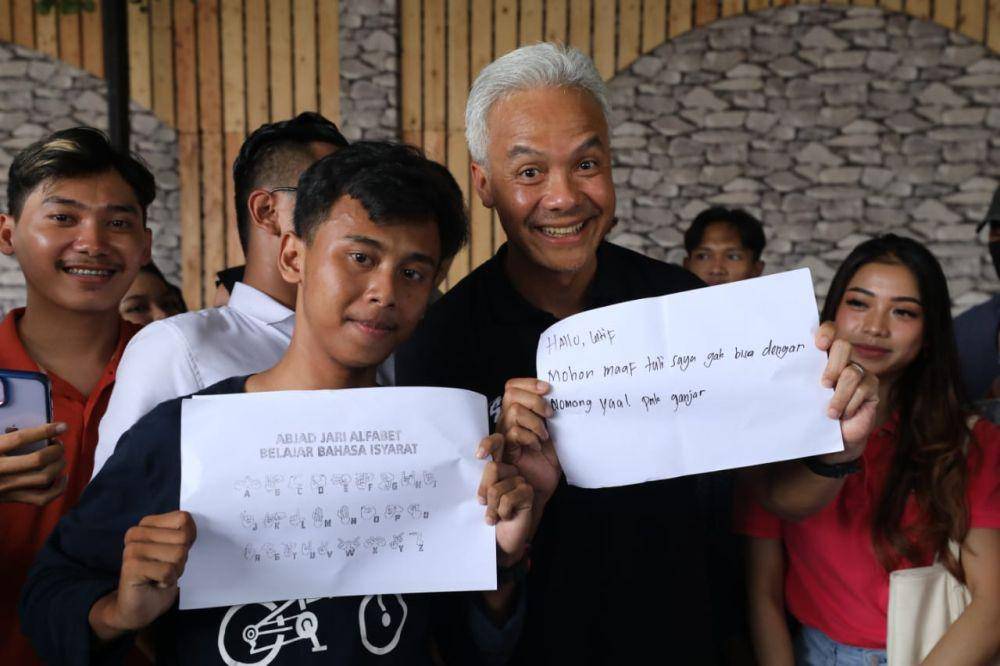 ABJAD JARI ALFABET
BELAJAR BAHASA ISYARAT
A B C D E F G H I
J K L M N O P Q
R S T U V W X Y Z
HALLO, latif
Mohon maaf tuli saya gak bisa dengar
Nomong pak ganjar